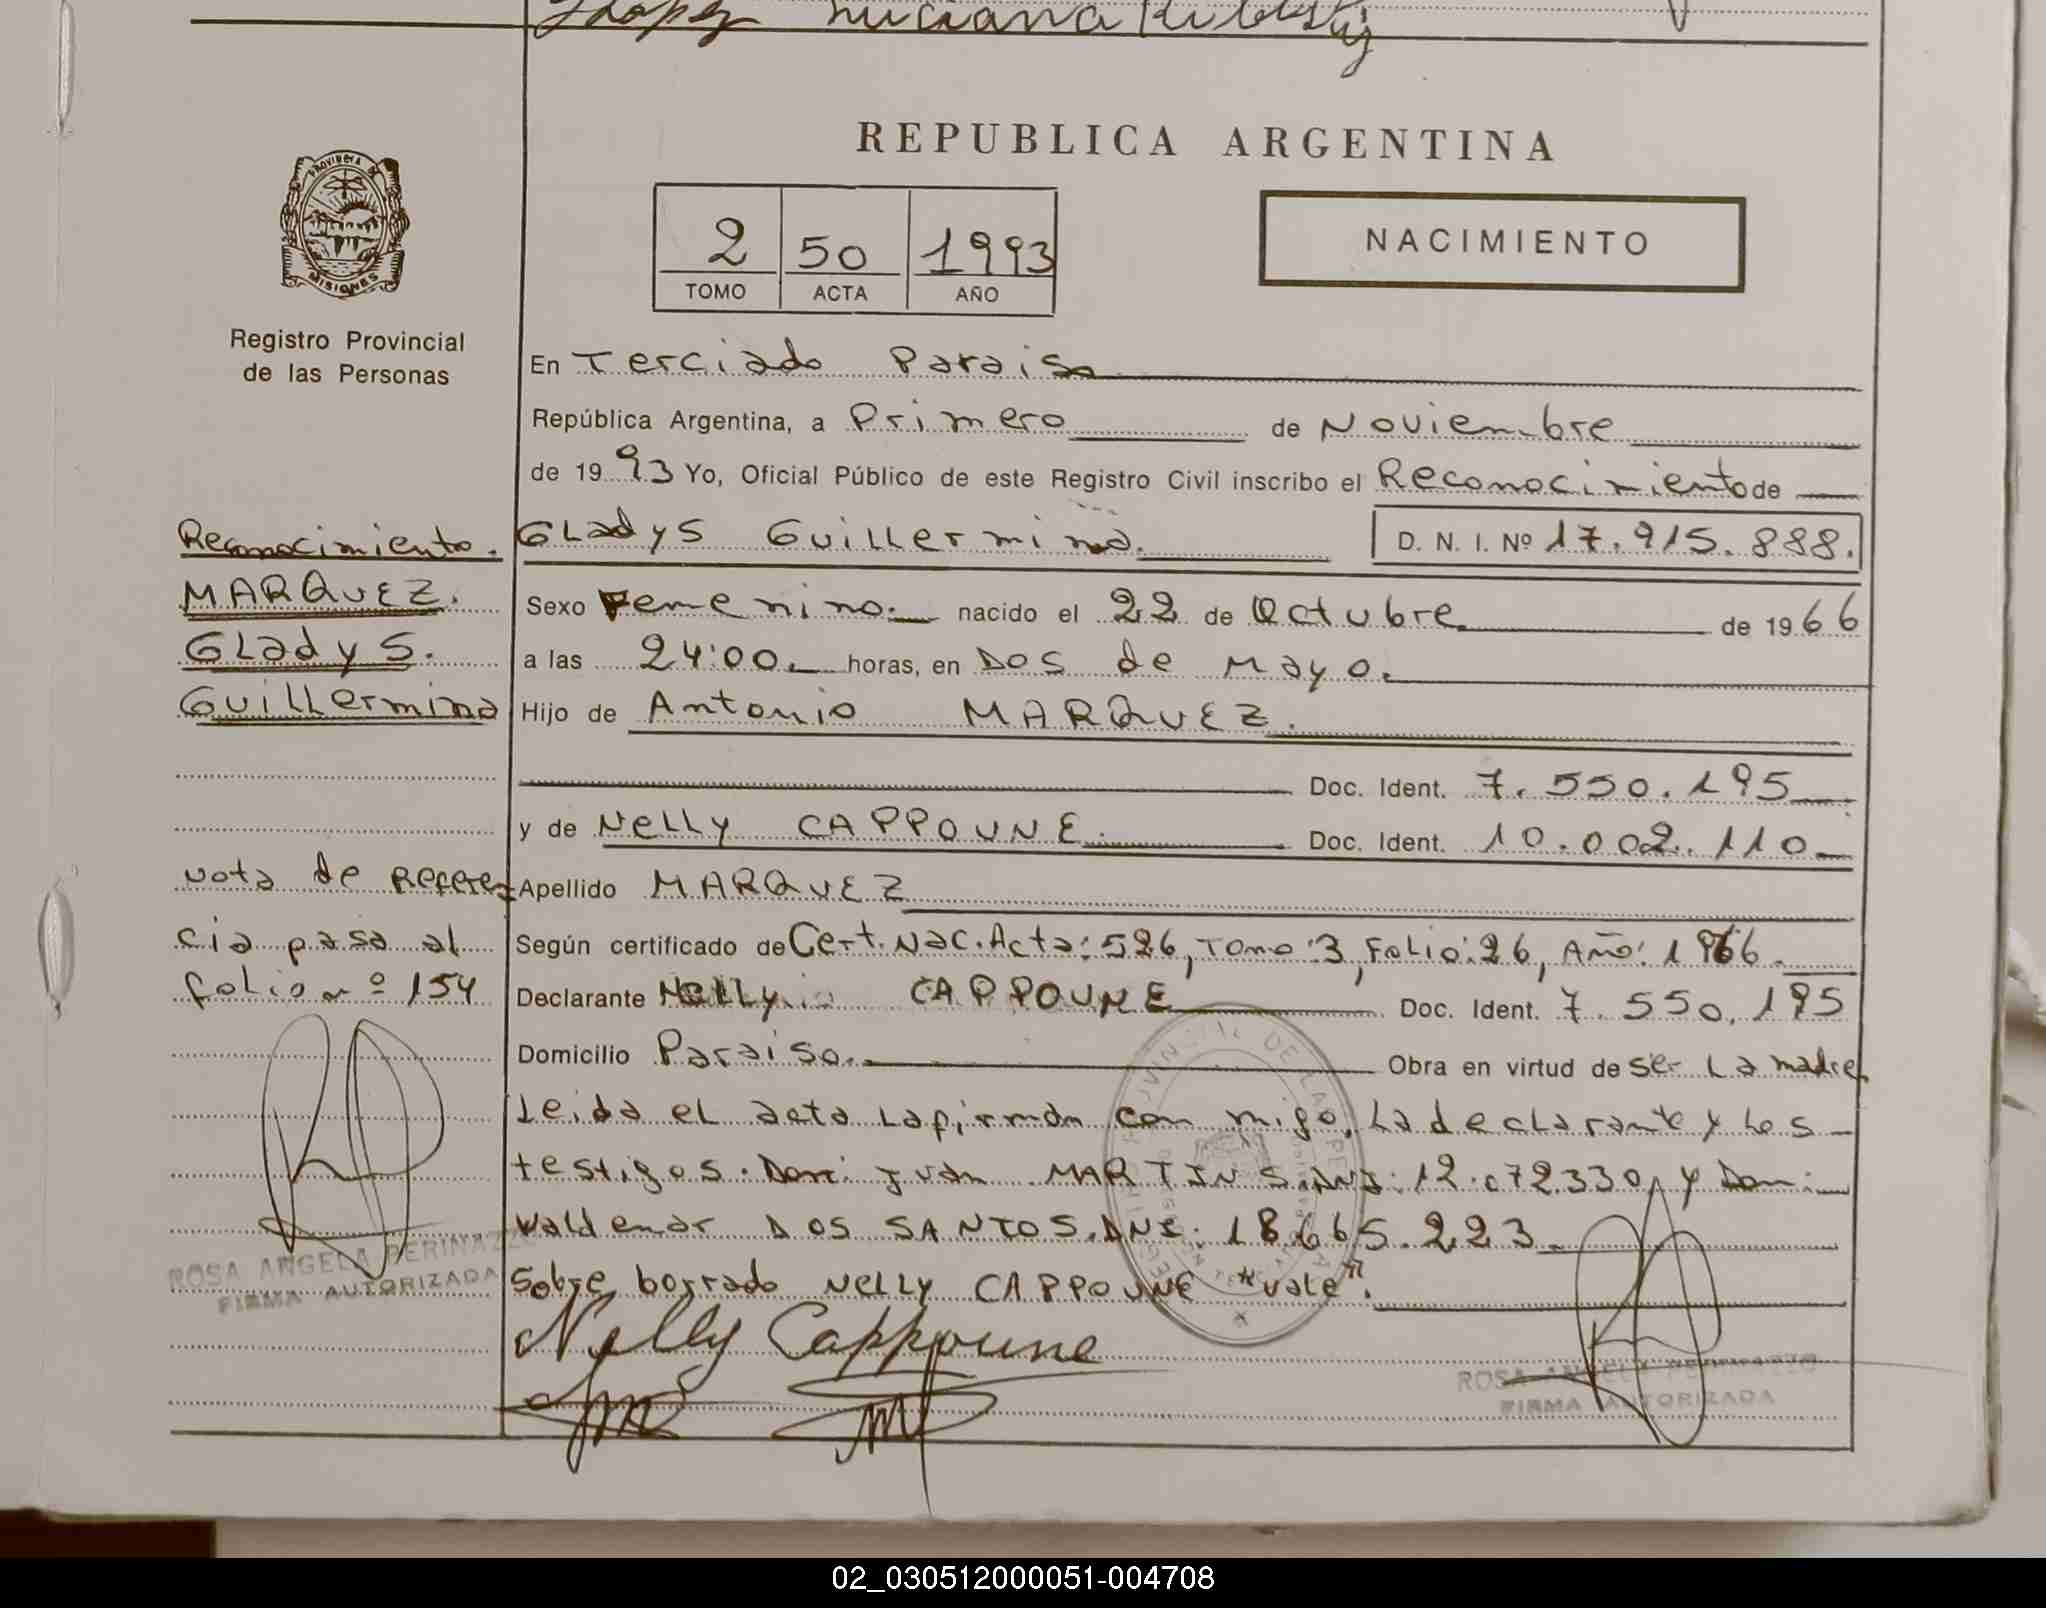 Luciana
REPUBLICA ARGENTINA
PROVINCIA DE
MISIONES
2 50 1993
TOMO ACTA AÑO
NACIMIENTO
Registro Provincial
de las Personas
En Terciado Paraiso
República Argentina, a Primero de Noviembre
de 1993 Yo, Oficial Público de este Registro Civil inscribo el Reconocimiento de
Gladys Guillermina. D. N. I. Nº 17.915.888.
Sexo Femenino. nacido el 22 de Octubre de 1966
a las 24:00. horas, en Dos de Mayo.
Hijo de Antonio MARQUEZ.
Doc. Ident. 7.550.195
y de Nelly CAPPOUNE. Doc. Ident. 10.002.110
Apellido MARQUEZ
Según certificado de Cert. Nac. Acta: 526, Tomo: 3, Folio: 26, Año: 1966.
Declarante Nelly CAPPOUNE Doc. Ident. 7.550.195
Domicilio Paraiso. Obra en virtud de ser la madre
Leida el acta la firman con migo, La declarante y los
testigos. Don: Juan MARTINS. DNI: 12.072.330, y Don:
Waldemar DOS SANTOS. DNI: 18.665.223
Sobre borrado Nelly CAPPOUNE "vale".
Nelly Cappoune
ROSA ANGELA PERINAZZO
FIRMA AUTORIZADA
Reconocimiento.
MARQUEZ.
Gladys.
Guillermina
Nota de Referen
cia pasa al
folio nº 154
ROSA ANGELA PERINAZZO
FIRMA AUTORIZADA
02_030512000051-004708